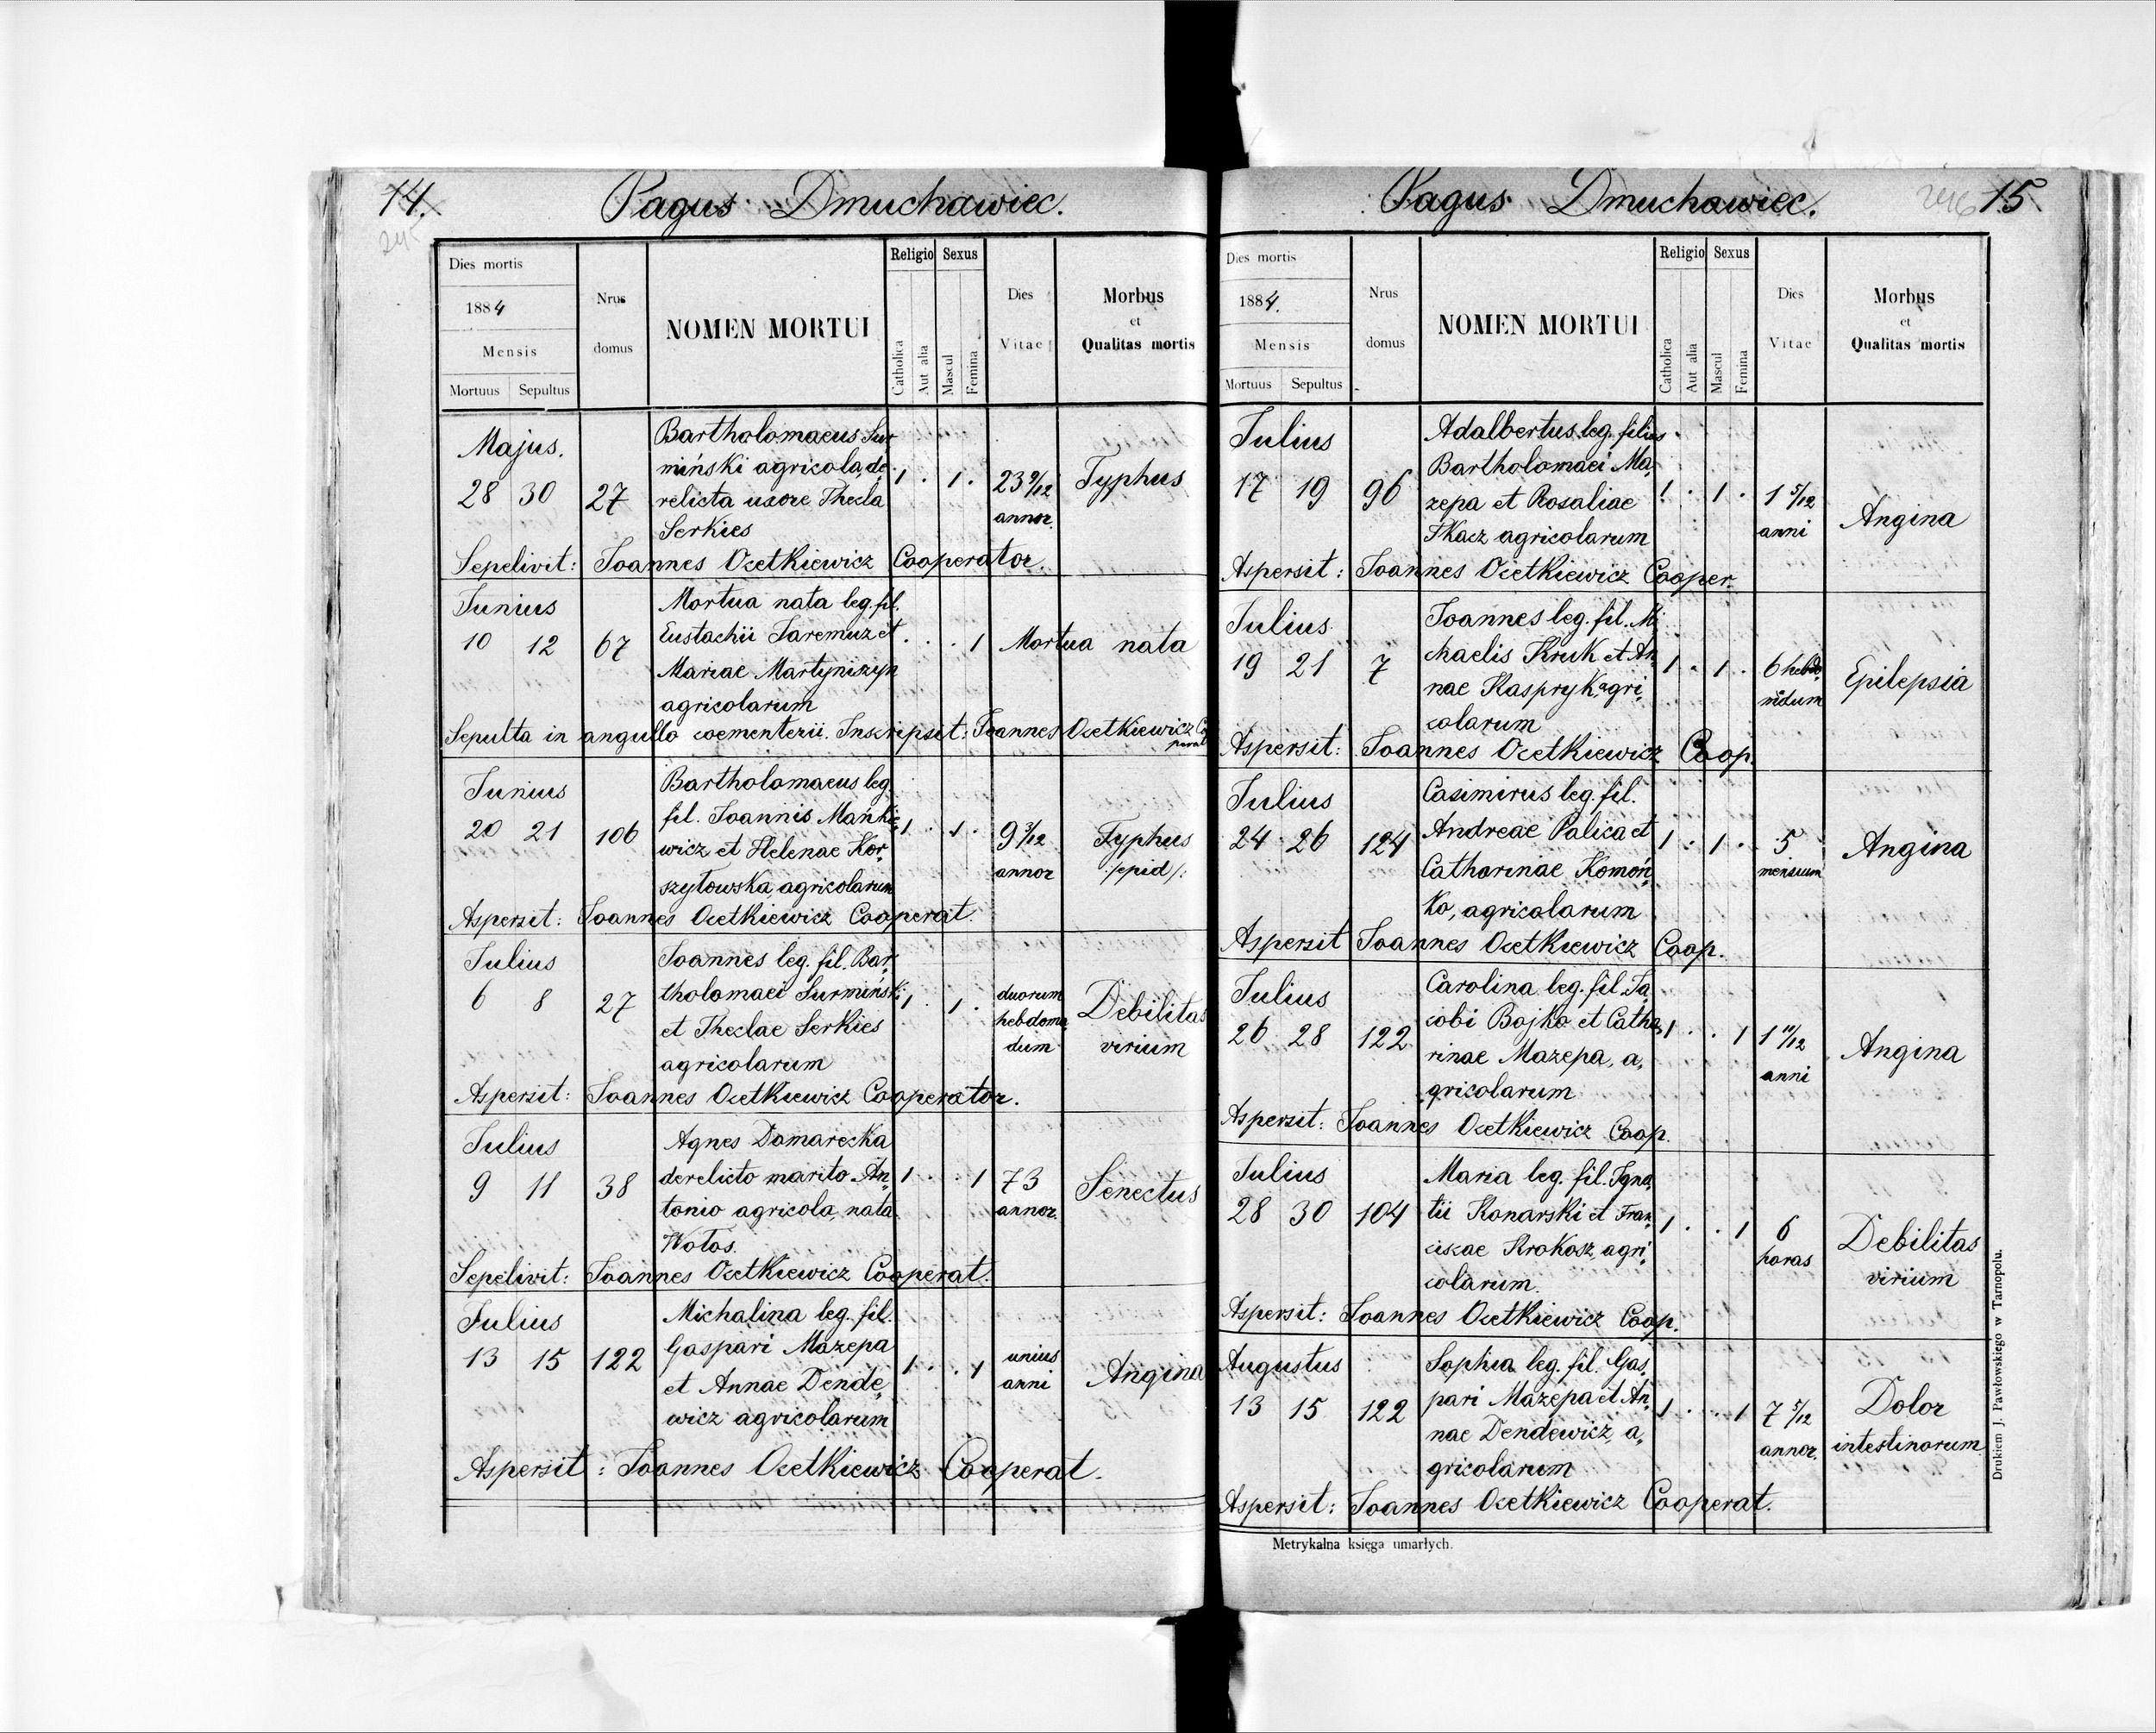 14.
Pagus Dmuchawiec.
Dies mortis
1884
Mensis
Mortuus Sepultus
Nrus
domus
NOMEN MORTUI
Religio
Catholica
Aut alia
Sexus
Mascul
Femina
Dies
Vitae
Morbus
et
Qualitas mortis
Majus.
28 30 27
Bartholomaeus Sur
miński agricola, de
relicta uxore Thecla
Serkies
1 . 1 .
23 9/12
annor.
Typhus
Sepelivit: Joannes Ocetkiewicz Cooperator.
Junius
10 12 67
Mortua nata leg. fil.
Eustachii Jaremuz et
Mariae Martyniszyn
agricolarum
. . . 1
Mortua nata
Sepulta in angullo coementerii. Inscripsit: Joannes Ocetkiewicz Co
perat
Junius
20 21 106
Bartholomaeus leg.
fil. Joannis Mańkie„
wicz et Helenae Kor„
szyłowska agricolarum
1 . 1 .
9 3/12
annor
Typhus
/:epid/:
Aspersit: Joannes Ocetkiewicz Cooperat.
Julius
6 8 27
Joannes leg. fil. Bar„
tholomaei Surmiński
et Theclae Serkies
agricolarum
1 . 1 .
duorum
hebdoma„
dum
Debilitas
virium
Aspersit: Joannes Ocetkiewicz Cooperator.
Julius
9 11 38
Agnes Domarecka
derelicto marito An„
tonio agricola, nata
Wołos.
1 . . 1
73
annor.
Senectus
Sepelivit: Joannes Ocetkiewicz Cooperat.
Julius
13 15 122
Michalina leg. fil.
Gaspari Mazepa
et Annae Dende„
wicz agricolarum
1 . . 1
unius
anni
Angina
Aspersit: Joannes Ocetkiewicz Cooperat.
246 15
Pagus Dmuchawiec.
Dies mortis
1884.
Mensis
Mortuus Sepultus
Nrus
domus
NOMEN MORTUI
Religio
Catholica
Aut alia
Sexus
Mascul
Femina
Dies
Vitae
Morbus
et
Qualitas mortis
Julius
17 19 96
Adalbertus leg. filius
Bartholomaei Ma„
zepa et Rosaliae
Tkacz agricolarum
1 . 1 .
1 5/12
anni
Angina
Aspersit: Joannes Ocetkiewicz Cooper.
Julius
19 21 7
Joannes leg. fil. Mi
chaelis Kruk et An„
nae Kaspryk, agri„
colarum
1 . 1 .
6 hebdo„
madum
Epilepsia
Aspersit: Joannes Ocetkiewicz Coop.
Julius
24 26 124
Casimirus leg. fil.
Andreae Palica et
Catharinae Komoń„
ko, agricolarum
1 . 1 .
5
mensium
Angina
Aspersit Joannes Ocetkiewicz Coop.
Julius
26 28 122
Carolina leg. fil. Ja„
cobi Bojko et Catha„
rinae Mazepa, a„
gricolarum
1 . . 1
1 11/12
anni
Angina
Aspersit: Joannes Ocetkiewicz Coop.
Julius
28 30 104
Maria leg. fil. Igna„
tii Konarski et Fran„
ciscae Krokosz, agri„
colarum.
1 . . 1
6
horas
Debilitas
virium
Aspersit: Joannes Ocetkiewicz Coop.
Augustus
13 15 122
Sophia leg. fil. Gas„
pari Mazepa et An„
nae Dendewicz, a„
gricolarum
1 . . 1
7 5/12
annor.
Dolor
intestinorum
Aspersit: Joannes Ocetkiewicz Cooperat.
Metrykalna księga umarłych.
Drukiem J. Pawłowskiego w Tarnopolu.